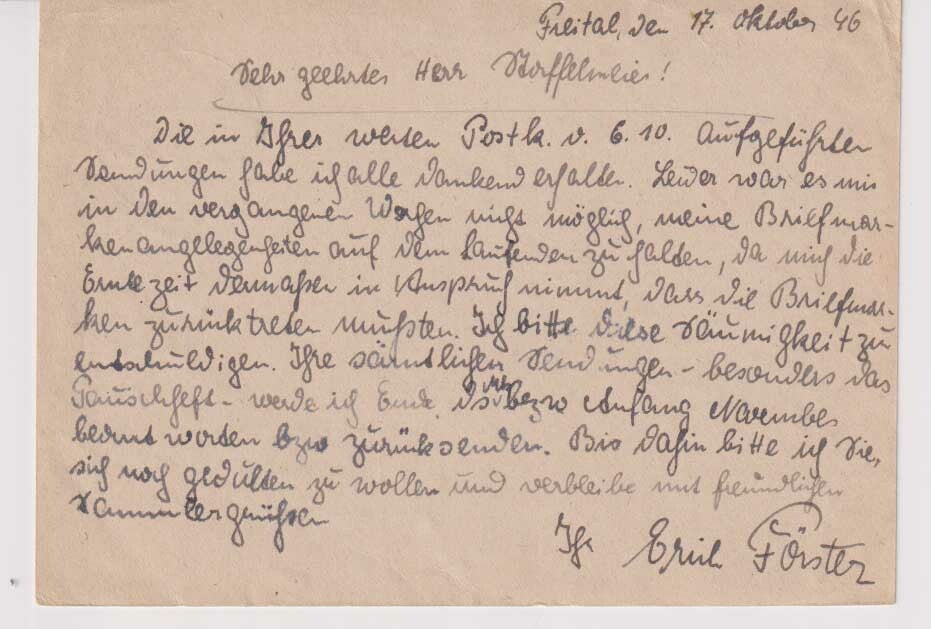 Freital, den 17. Oktober 46
Sehr geehrter Herr Stoffelmeier!
Die in Ihrer werten Postk. v. 6.10. aufgeführten
Sendungen habe ich alle dankend erhalten. Leider war es mir
in den vergangenen Wochen nicht möglich, meine Briefmar-
kenangelegenheiten auf dem Laufenden zu halten, da mich die
Erntezeit dermaßen in Anspruch nimmt, dass die Briefmar-
ken zurücktreten mußten. Ich bitte diese Säumigkeit zu
entschuldigen. Ihre sämtlichen Sendungen - besonders das
Tauschheft - werde ich Ende ds. Mts. bezw Anfang November
beantworten bzw zurücksenden. Bis dahin bitte ich Sie,
sich noch gedulten zu wollen und verbleibe mit freundlichen
Sammlergrüßen
Ihr Erich Förster